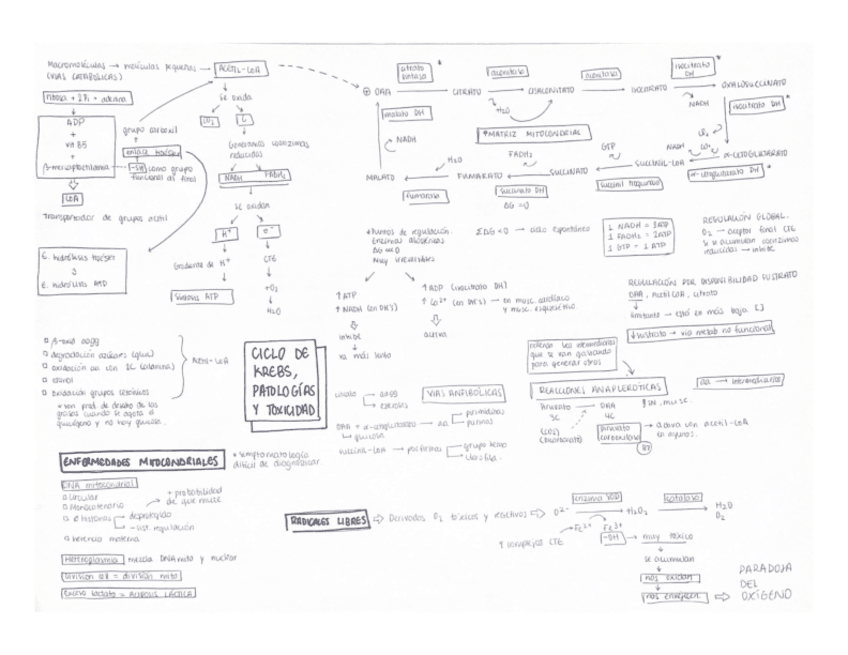 Macromoléculas → moléculas pequeñas → ACETIL-COA
(VÍAS CATABÓLICAS)
ribosa + 2Pi + adenina
ADP
+
vit B5
+
β-mercaptoetilamina
COA
Transportador de grupos acetil
grupo carboxil
+
enlace tioéster
-SH como grupo
funcional al final
E. hidrólisis tioéster
E. hidrólisis ATP
se oxida
CO2
Generamos coenzimas
reducidos
NADH
FADH2
se oxidan
H+
e-
Gradiente de H+
CTE
+O2
H2O
Síntesis ATP
citrato
sintasa *
aconitasa
aconitasa
isocitrato
DH *
OAA
CITRATO
CISACONITATO
ISOCITRATO
OXALOSUCCINATO
H2O
NADH
malato DH
isocitrato
DH *
↑MATRIZ MITOCONDRIAL
NADH
CO2
H2O
FADH2
GTP
NADH
CO2
MALATO
FUMARATO
SUCCINATO
SUCCINIL-COA
α-CETOGLUTARATO
fumarasa
succinato DH
succinil tioquinasa
α-cetoglutarato DH *
*Puntos de regulación.
Enzimas alostéricas
Muy irreversibles
ΣΔG<0 → ciclo espontáneo
1 NADH = 3ATP
1 FADH2 = 2ATP
1 GTP = 1 ATP
REGULACIÓN GLOBAL.
O2 → aceptor final CTE
Si se acumulan coenzimas
reducidas → inhibe
↑ATP
↑NADH (en DH's)
inhibe
va más lento
↑ADP (isocitrato DH)
↑Ca2+ (en DH's) → en musc. cardíaco
y musc. esquelético.
activa
REGULACIÓN POR DISPONIBILIDAD SUSTRATO
OAA, Acetil COA, citrato
limitante → está en más baja [ ]
↓sustrato → vía metab no funcional
β-oxid aagg
degradación azúcares (gluc)
etanol
oxidación grupos cetónicos
Acetil-COA
CICLO DE
KREBS,
PATOLOGÍAS
Y TOXICIDAD
rellenar los intermediarios
que se van gastando
para generar otros
REACCIONES ANAPLERÓTICAS
aa → intermediarios
Piruvato → OAA
3C 4C
(CO2)
(bicarbonato)
piruvato
carboxilasa
→ activa con acetil-COA
B7
citrato
aagg
esteroles
VÍAS ANFIBÓLICAS
OAA + α-cetoglutarato → aa
purinas
glucosa
succinil-COA → porfirinas
grupo hemo
clorofila.
ENFERMEDADES MITOCONDRIALES
*sintomatología
difícil de diagnosticar.
DNA mitocondrial
circular
Monocatenario
+ probabilidad
de que mute
Ø histonas
desprotegido
- list. regulación
herencia materna
Heteroplasmia mezcla DNA mito y nuclear
División cél = división mito
Exceso lactato = ACIDOSIS LÁCTICA
RADICALES LIBRES ⇒ Derivados O2 tóxicos y reactivos ⇒ O2-
enzima SOD
H2O2
catalasa
H2O
O2
Fe2+
Fe3+
↑ complejos CTE
-OH → muy tóxico
se acumulan
nos oxidan
nos envejecen
PARADOJA
DEL
OXÍGENO